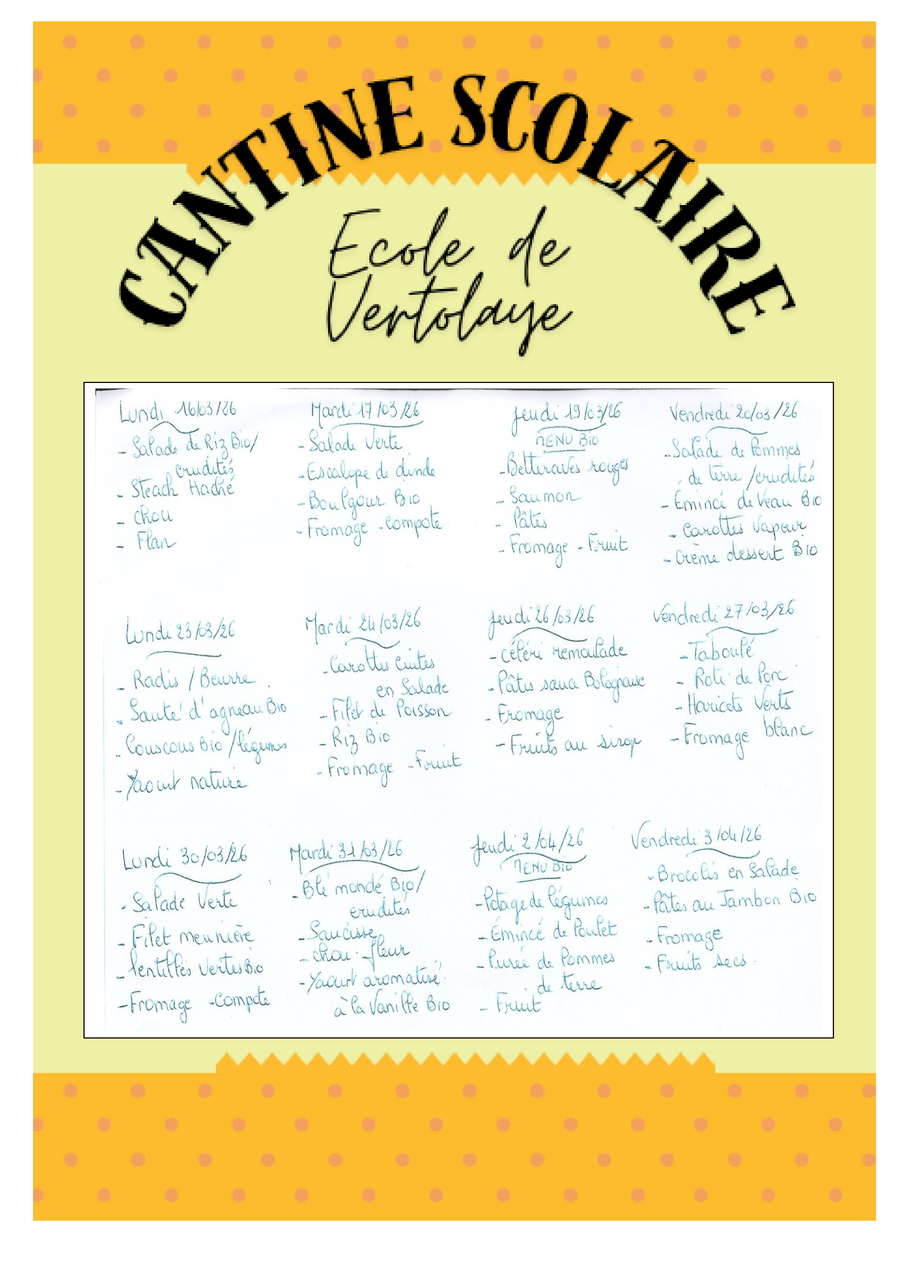 CANTINE SCOLAIRE
Ecole de
Vertolaye
Lundi 16/03/26
- Salade de Riz Bio/
crudités
- Steack Haché
- Chou
- Flan
Mardi 17/03/26
- Salade Verte
- Escalope de dinde
- Boulgour Bio
- Fromage - Compote
Jeudi 19/03/26
MENU BIO
- Betteraves rouges
- Saumon
- Pâtes
- Fromage - Fruit
Vendredi 20/03/26
- Salade de Pommes
de terre /crudités
- Émincé de Veau Bio
- Carottes Vapeur
- Crème dessert Bio
Lundi 23/03/26
- Radis / Beurre
- Sauté d'agneau Bio
- Couscous Bio /légumes
- Yaourt nature
Mardi 24/03/26
- Carottes Cuites
en Salade
- Filet de Poisson
- Riz Bio
- Fromage - Fruit
Jeudi 26/03/26
- Céléri remoulade
- Pâtes sauce Bolognaise
- Fromage
- Fruits au sirop
Vendredi 27/03/26
- Taboulé
- Roti de Porc
- Haricots Verts
- Fromage blanc
Lundi 30/03/26
- Salade Verte
- Filet meunière
- lentilles Vertes Bio
- Fromage - Compote
Mardi 31/03/26
- Blé mondé Bio/
crudités
- Saucisse
- Chou-fleur
- Yaourt aromatisé
à la Vanille Bio
Jeudi 2/04/26
MENU BIO
- Potage de légumes
- Émincé de Poulet
- Purée de Pommes
de terre
- Fruit
Vendredi 3/04/26
- Brocolis en Salade
- Pâtes au Jambon Bio
- Fromage
- Fruits secs.